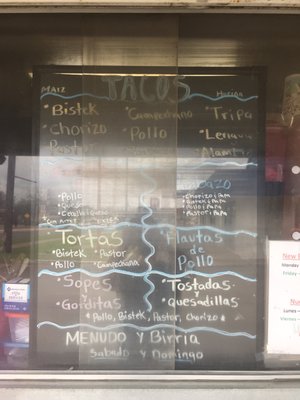 TACOS
MAIZ
Harina
• Bistek
• Campechano
• Tripa
• Chorizo
• Pollo
• Lengua
Pastor
• Alambre
• Pollo
• Queso
• Chorizo y Papa
• Bistek y Papa
• Pollo y Papa
• Pastor y Papa
Tortas
• Bistek • Pastor
• Pollo • Campechana
• Flautas
de
Pollo
• Sopes
• Gorditas
• Tostadas
• Quesadillas
• Pollo, Bistek, Pastor, Chorizo
MENUDO Y Birria
Sabado y Domingo
Monday
Friday
Lunes
Viernes